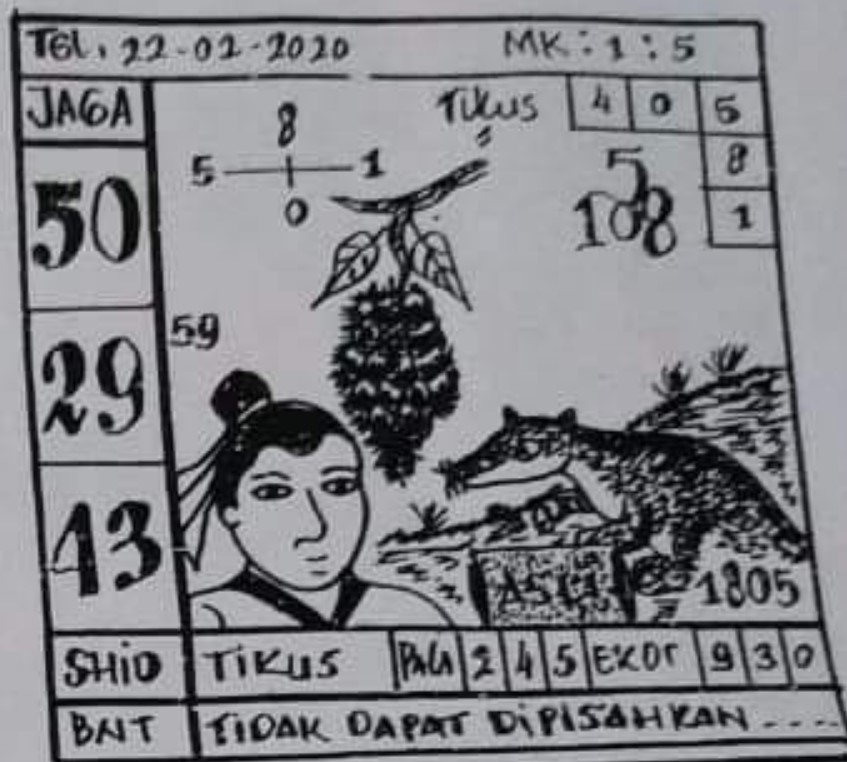 TGL. 22-02-2020 MK : 1 : 5
JAGA
8
5 1
0
Tikus 4 0 5
8
1
5
108
50
59
29
13
ASLI
1805
SHIO TIKUS 2 4 5 EKOr 9 3 0
BNT TIDAK DAPAT DIPISAHKAN ....